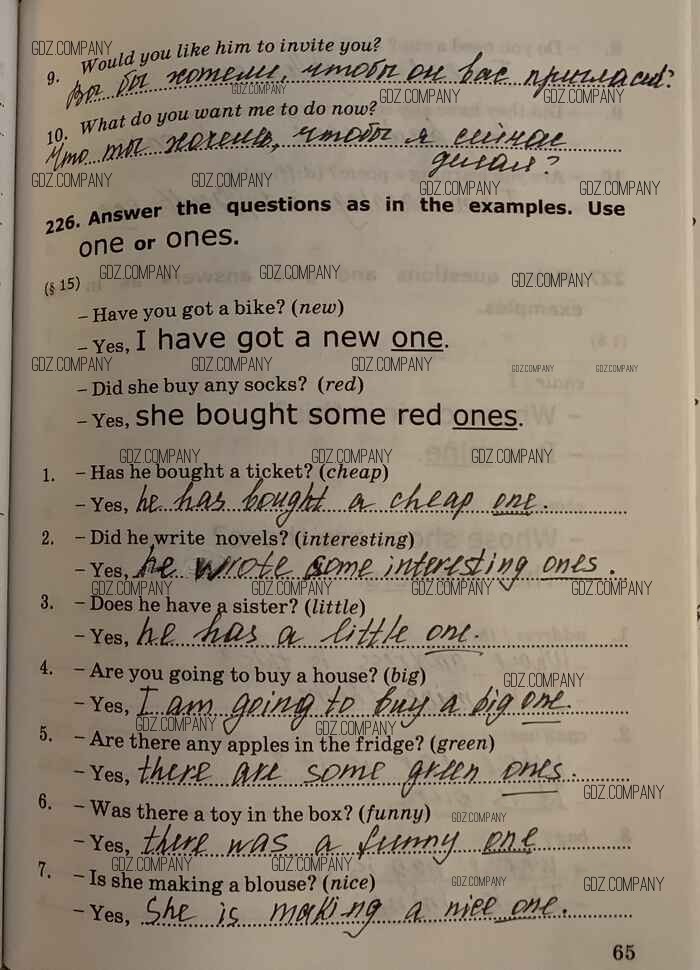 GDZ.COMPANY
9. Would you like him to invite you?
Вы бы хотели, чтобы он вас пригласил?
GDZ.COMPANY GDZ.COMPANY GDZ.COMPANY
10. What do you want me to do now?
Что ты хочешь, чтобы я сейчас
делал?
GDZ.COMPANY GDZ.COMPANY GDZ.COMPANY GDZ.COMPANY
226. Answer the questions as in the examples. Use
one or ones.
GDZ.COMPANY GDZ.COMPANY GDZ.COMPANY
(§ 15)
– Have you got a bike? (new)
– Yes, I have got a new one.
GDZ.COMPANY GDZ.COMPANY GDZ.COMPANY GDZ.COMPANY GDZ.COMPANY
– Did she buy any socks? (red)
– Yes, she bought some red ones.
GDZ.COMPANY GDZ.COMPANY GDZ.COMPANY
1. – Has he bought a ticket? (cheap)
– Yes, he has bought a cheap one.
2. – Did he write novels? (interesting)
– Yes, he wrote some interesting ones.
GDZ.COMPANY GDZ.COMPANY GDZ.COMPANY GDZ.COMPANY
3. – Does he have a sister? (little)
– Yes, he has a little one.
4. – Are you going to buy a house? (big)
GDZ.COMPANY
– Yes, I am going to buy a big one.
GDZ.COMPANY GDZ.COMPANY
5. – Are there any apples in the fridge? (green)
– Yes, there are some green ones.
GDZ.COMPANY
6. – Was there a toy in the box? (funny)
GDZ.COMPANY
– Yes, there was a funny one
GDZ.COMPANY GDZ.COMPANY
7. – Is she making a blouse? (nice)
GDZ.COMPANY GDZ.COMPANY
– Yes, She is making a nice one.
65